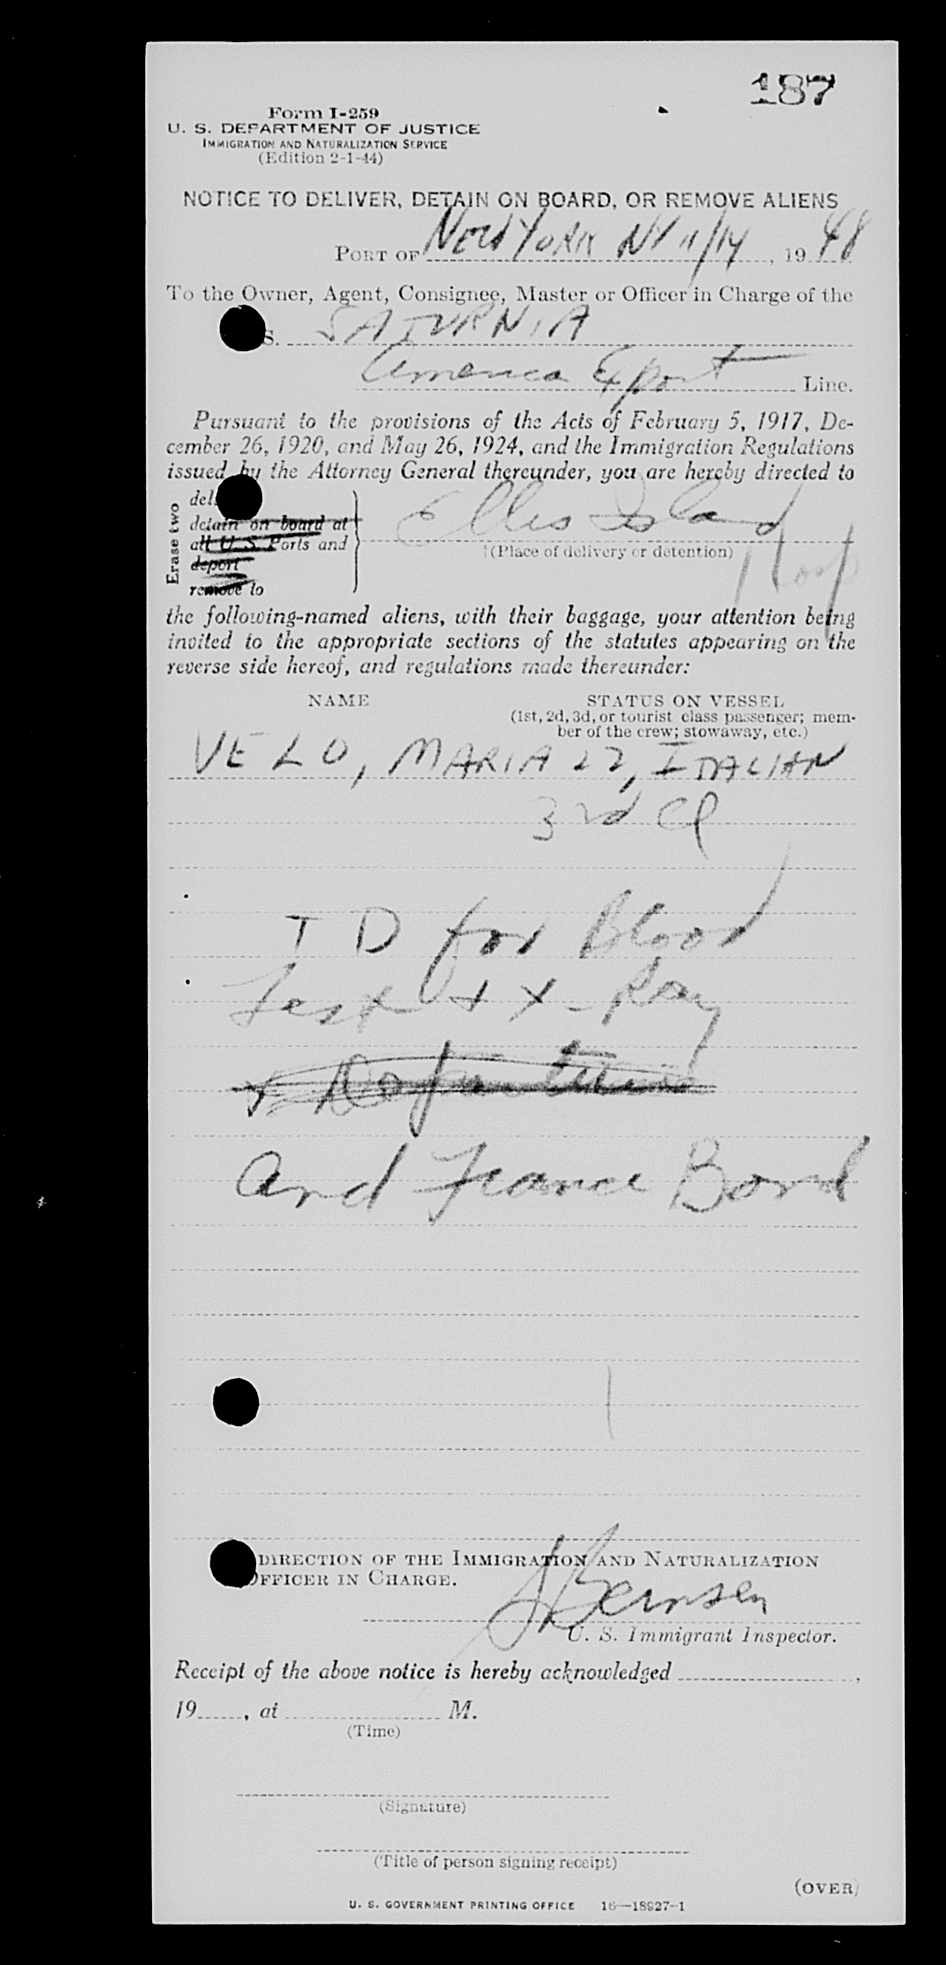 187
Form I-259
U. S. DEPARTMENT OF JUSTICE
IMMIGRATION AND NATURALIZATION SERVICE
(Edition 2-1-44)
NOTICE TO DELIVER, DETAIN ON BOARD, OR REMOVE ALIENS
PORT OF New York NY 11/14, 1948
To the Owner, Agent, Consignee, Master or Officer in Charge of the
S. SATURNIA
America Export Line.
Pursuant to the provisions of the Acts of February 5, 1917, De-
cember 26, 1920, and May 26, 1924, and the Immigration Regulations
issued by the Attorney General thereunder, you are hereby directed to
Erase two
del
detain on board at
all U. S. Ports and
deport
remove to
Ellis Island
(Place of delivery or detention)
Hosp
the following-named aliens, with their baggage, your attention being
invited to the appropriate sections of the statutes appearing on the
reverse side hereof, and regulations made thereunder:
NAME
STATUS ON VESSEL
(1st, 2d, 3d, or tourist class passenger; mem-
ber of the crew; stowaway, etc.)
VELO, MARIA 27, ITALIAN
3rd Cl
T D for Blood
Test + X-Ray
And Fiance Bond
DIRECTION OF THE IMMIGRATION AND NATURALIZATION
OFFICER IN CHARGE.
Bernsen
U. S. Immigrant Inspector.
Receipt of the above notice is hereby acknowledged ,
19 , at M.
(Time)
(Signature)
(Title of person signing receipt)
(OVER)
U. S. GOVERNMENT PRINTING OFFICE 16—18927-1